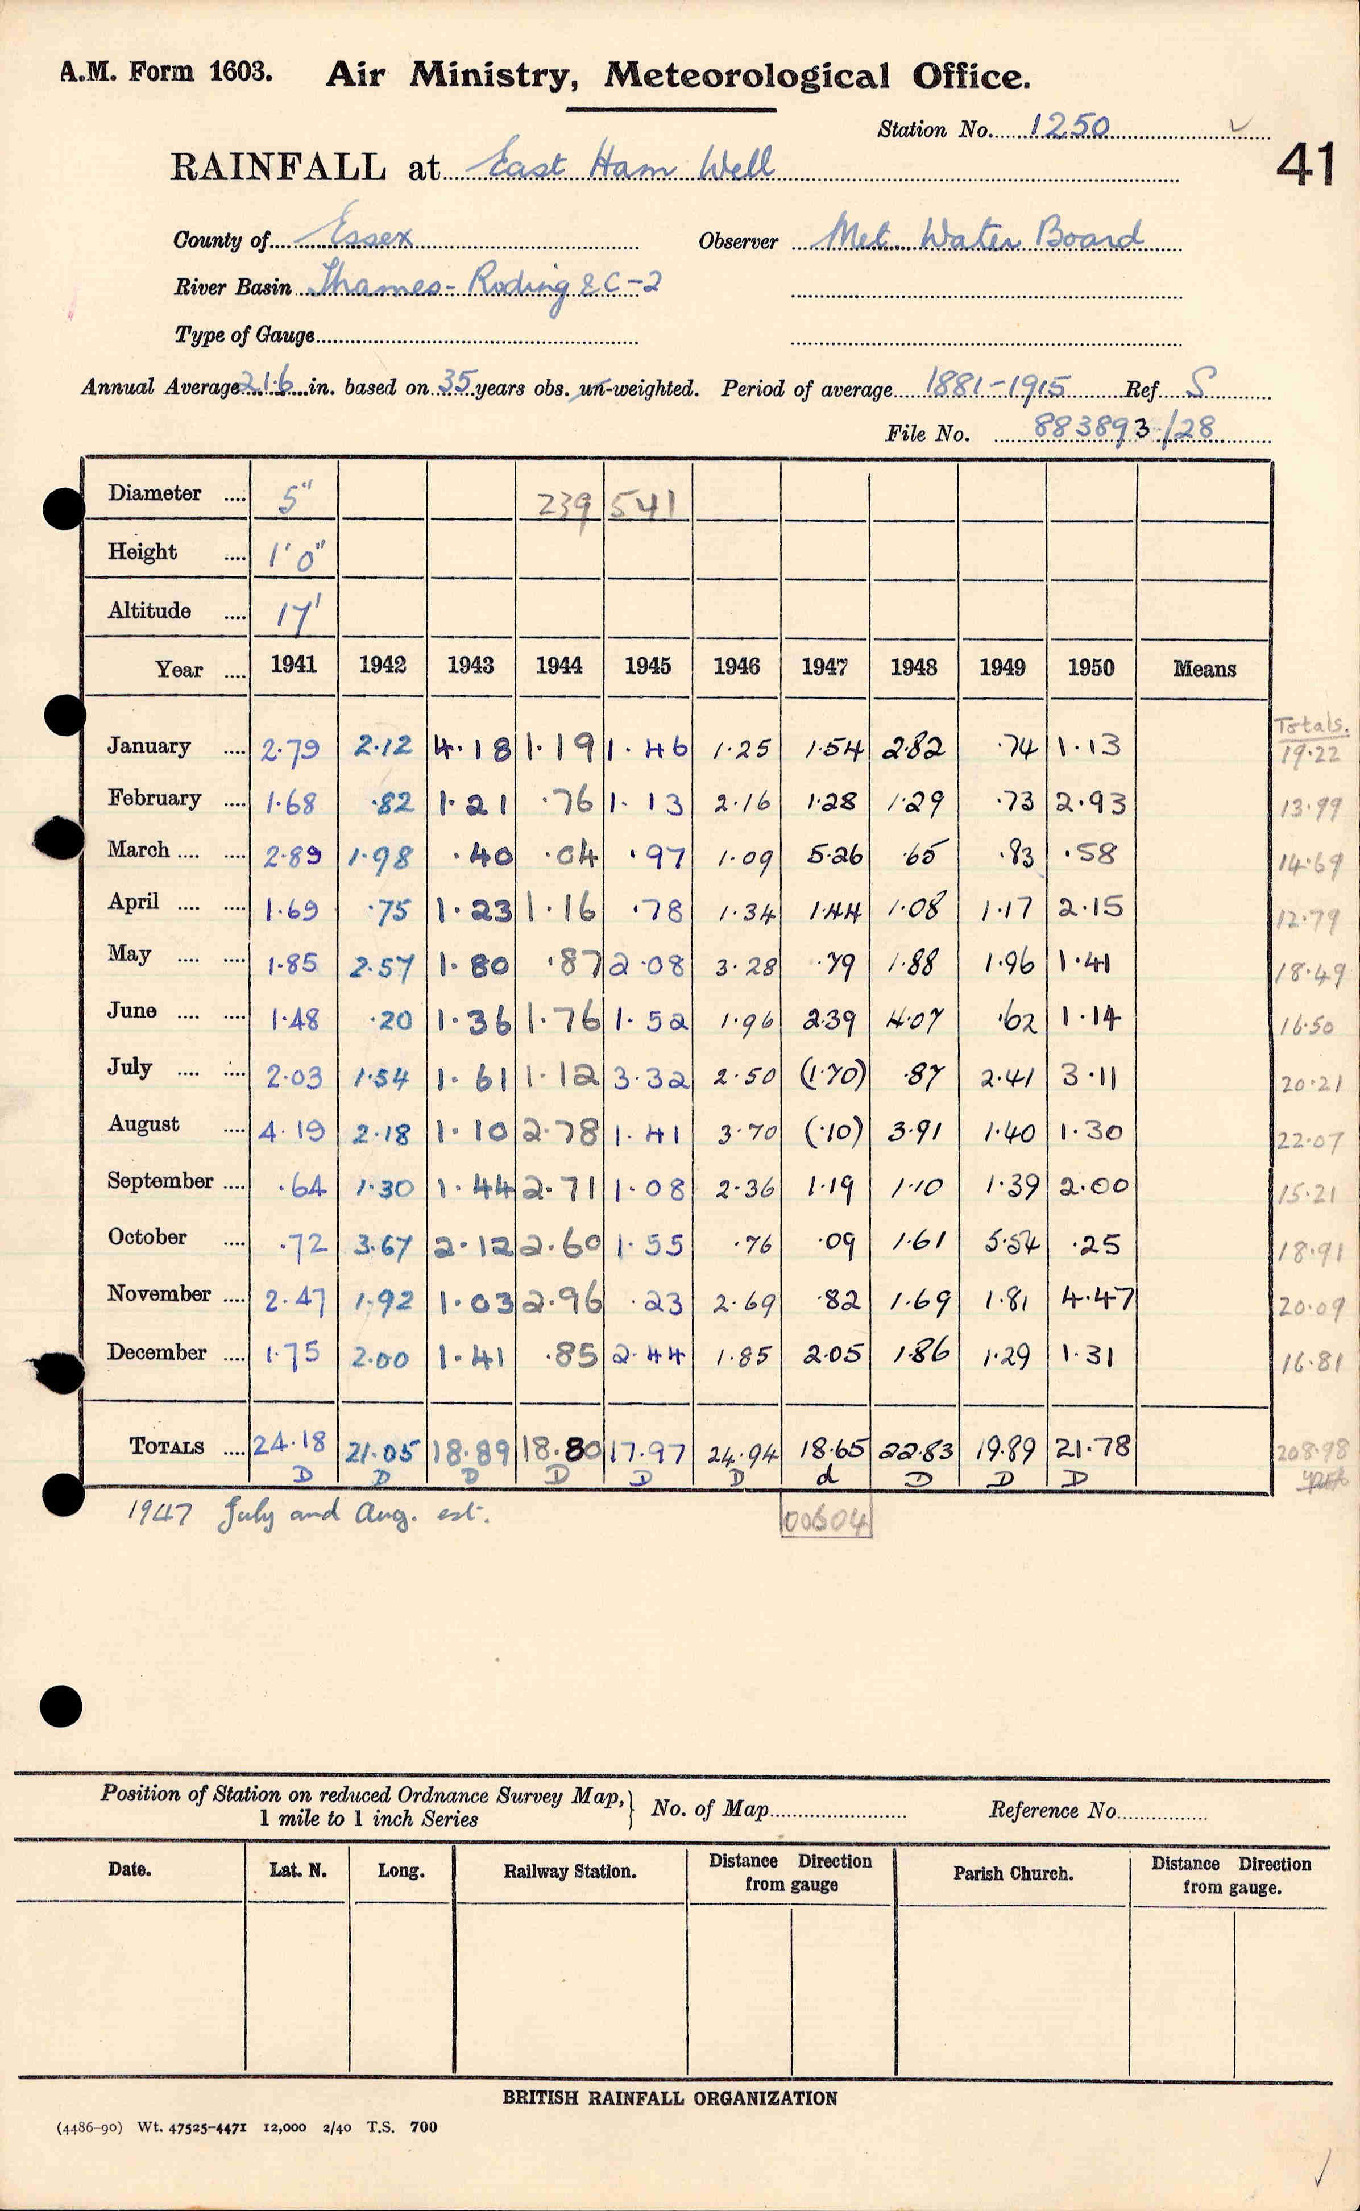 A.M. Form 1603. Air Ministry, Meteorological Office.
Station No. 1250 ✓
41
RAINFALL at East Ham Well
County of Essex Observer Met. Water Board
River Basin Thames - Roding &C -2
Type of Gauge
Annual Average 21.6 in. based on 35 years obs. un-weighted. Period of average 1881-1915 Ref S
File No. 883893/28
Diameter .... 5" 239 541
Height .... 1'0"
Altitude .... 17'
Year .... 1941 1942 1943 1944 1945 1946 1947 1948 1949 1950 Means
Totals.
January .... 2.79 2.12 4.18 1.19 1.46 1.25 1.54 2.82 .74 1.13 19.22
February .... 1.68 .82 1.21 .76 1.13 2.16 1.28 1.29 .73 2.93 13.99
March .... .... 2.89 1.98 .40 .04 .97 1.09 5.26 .65 .83 .58 14.69
April .... .... 1.69 .75 1.23 1.16 .78 1.34 1.44 1.08 1.17 2.15 12.79
May .... .... 1.85 2.57 1.80 .87 2.08 3.28 .79 1.88 1.96 1.41 18.49
June .... .... 1.48 .20 1.36 1.76 1.52 1.96 2.39 4.07 .62 1.14 16.50
July .... .... 2.03 1.54 1.61 1.12 3.32 2.50 (1.70) .87 2.41 3.11 20.21
August .... 4.19 2.18 1.10 2.78 1.41 3.70 (.10) 3.91 1.40 1.30 22.07
September .... .64 1.30 1.44 2.71 1.08 2.36 1.19 1.10 1.39 2.00 15.21
October .... .72 3.67 2.12 2.60 1.55 .76 .09 1.61 5.54 .25 18.91
November .... 2.47 1.92 1.03 2.96 .23 2.69 .82 1.69 1.81 4.47 20.09
December .... 1.75 2.00 1.41 .85 2.44 1.85 2.05 1.86 1.29 1.31 16.81
TOTALS .... 24.18 21.05 18.89 18.80 17.97 24.94 18.65 22.83 19.89 21.78 208.98
D D D D D D d D D D
1947 July and Aug. est. 00604
Position of Station on reduced Ordnance Survey Map, } No. of Map Reference No.
1 mile to 1 inch Series
Date. Lat. N. Long. Railway Station. Distance Direction from gauge Parish Church. Distance Direction from gauge.
BRITISH RAINFALL ORGANIZATION
(4486-90) Wt. 47525-4471 12,000 2/40 T.S. 700
✓